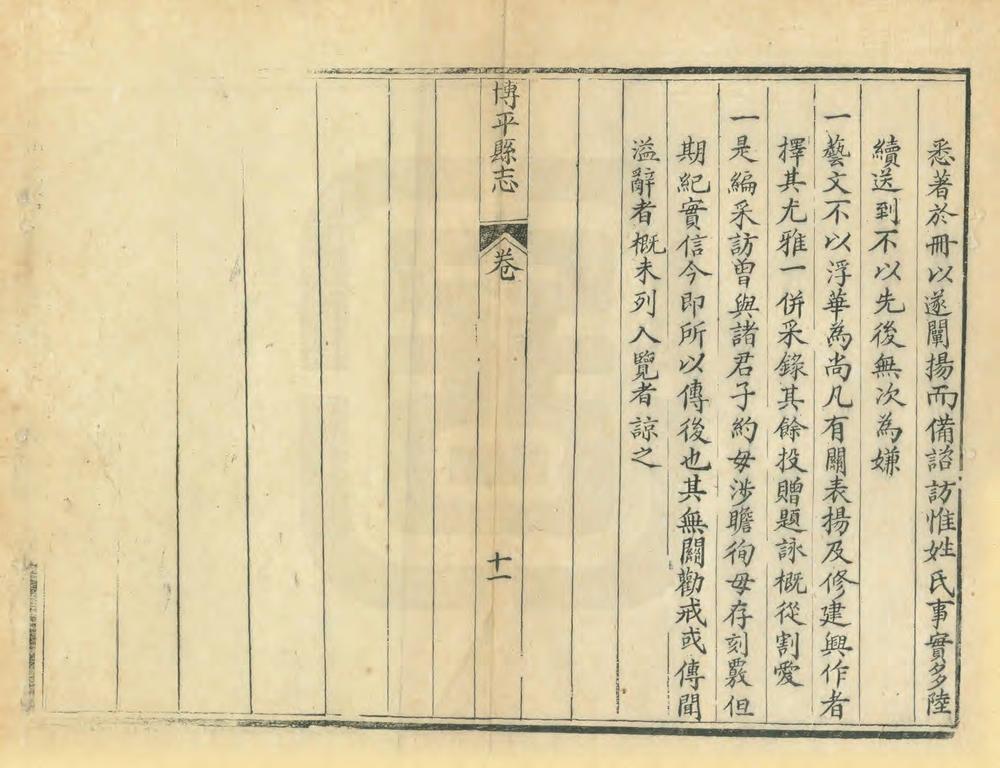 悉著於冊以遂闡揚而備諮訪惟姓氏事實多陸
續送到不以先後無次為嫌
一藝文不以浮華為尚凡有關表揚及修建興作者
擇其尤雅一併采錄其餘投贈題詠概從割愛
一是編采訪曾與諸君子約毋涉瞻徇毋存刻覈但
期紀實信今即所以傳後也其無關勸戒或傳聞
溢辭者概未列入覽者諒之
博平縣志
卷
十一